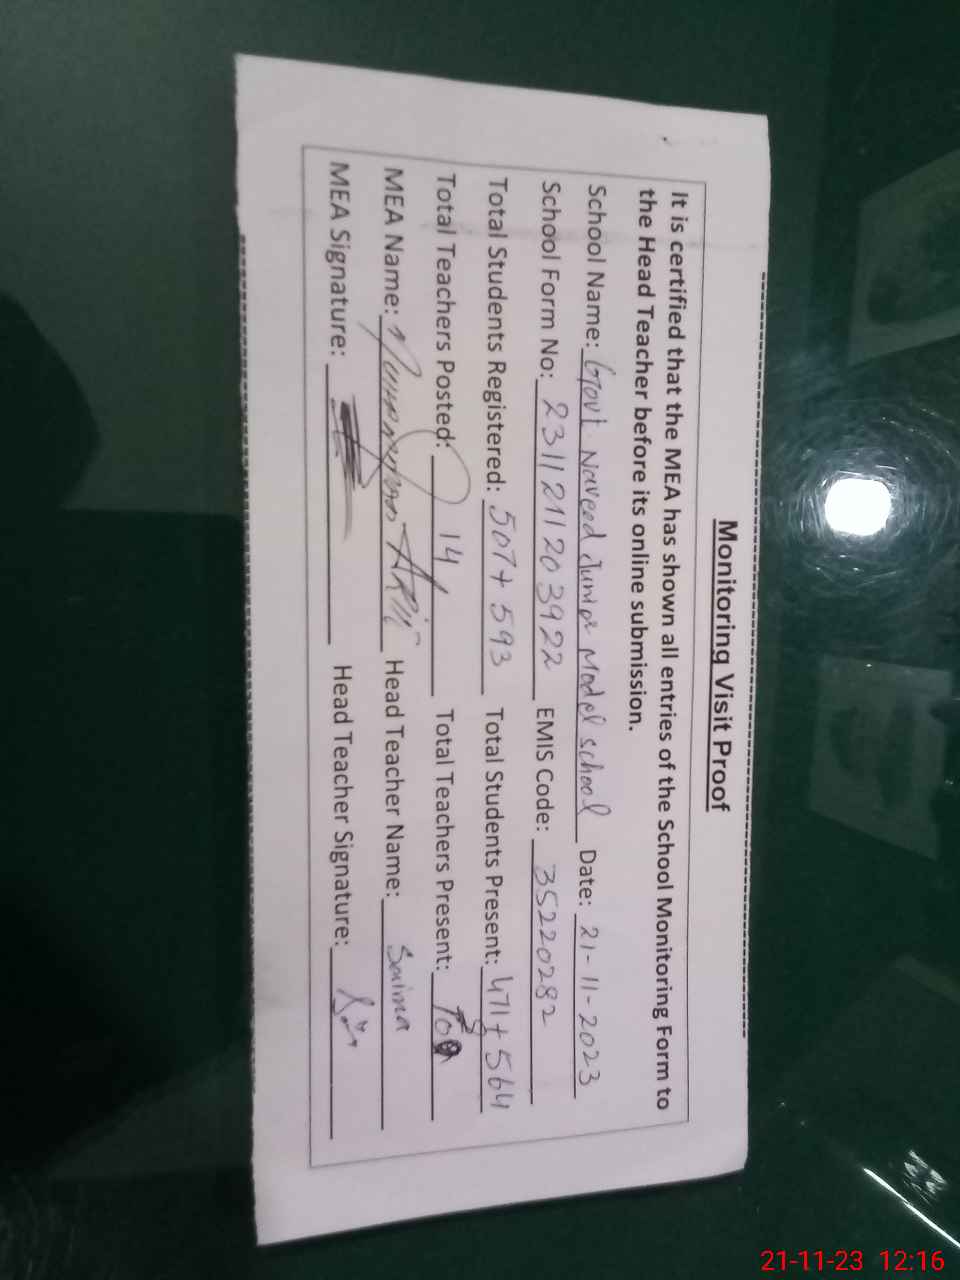 Monitoring Visit Proof
It is certified that the MEA has shown all entries of the School Monitoring Form to
the Head Teacher before its online submission.
School Name: Govt. Naveed Junior Model school Date: 21-11-2023
School Form No: 2311211203922 EMIS Code: 35220282
Total Students Registered: 507+593 Total Students Present: 471+564
Total Teachers Posted: 14 Total Teachers Present:
MEA Name: Arif Head Teacher Name: Saima
MEA Signature: Head Teacher Signature:
21-11-23 12:16